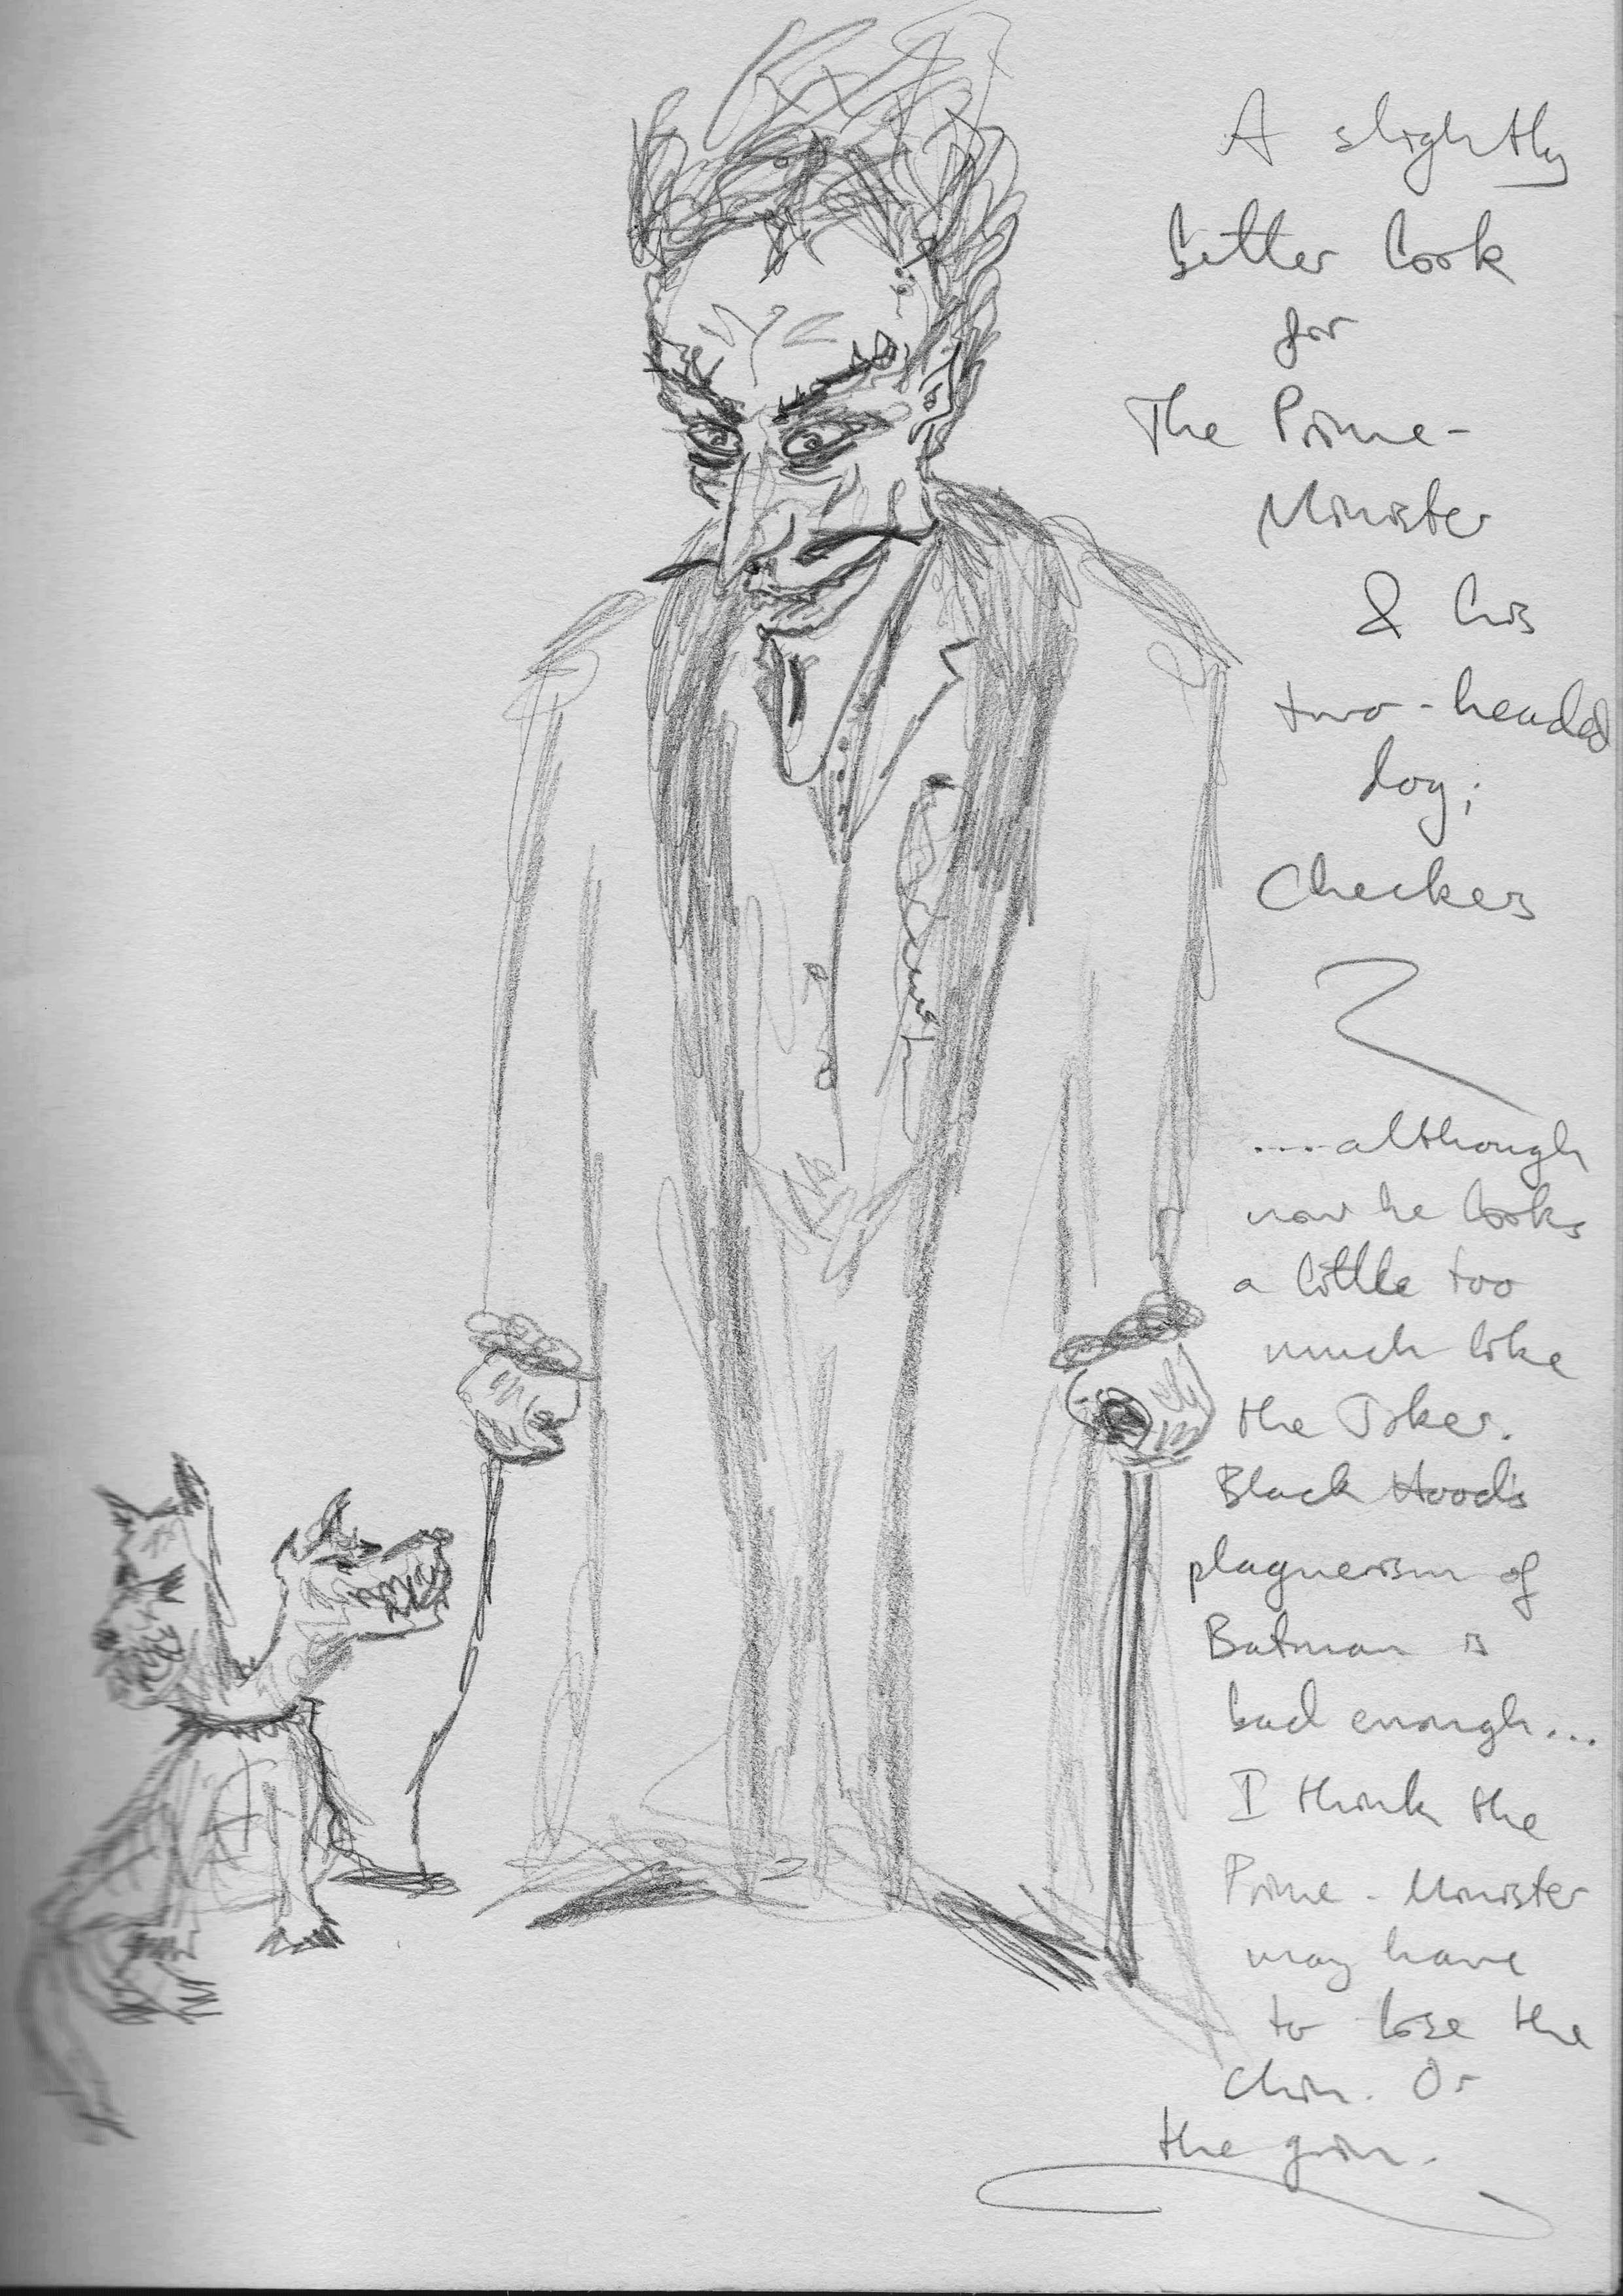 A slightly
better look
for
The Prime-
Minister
& his
two-headed
dog;
Checkers
....although
now he looks
a little too
much like
the Joker.
Black Hood's
plaguerism of
Batman is
bad enough...
I think the
Prime-Minister
may have
to lose the
chin. Or
the grin.